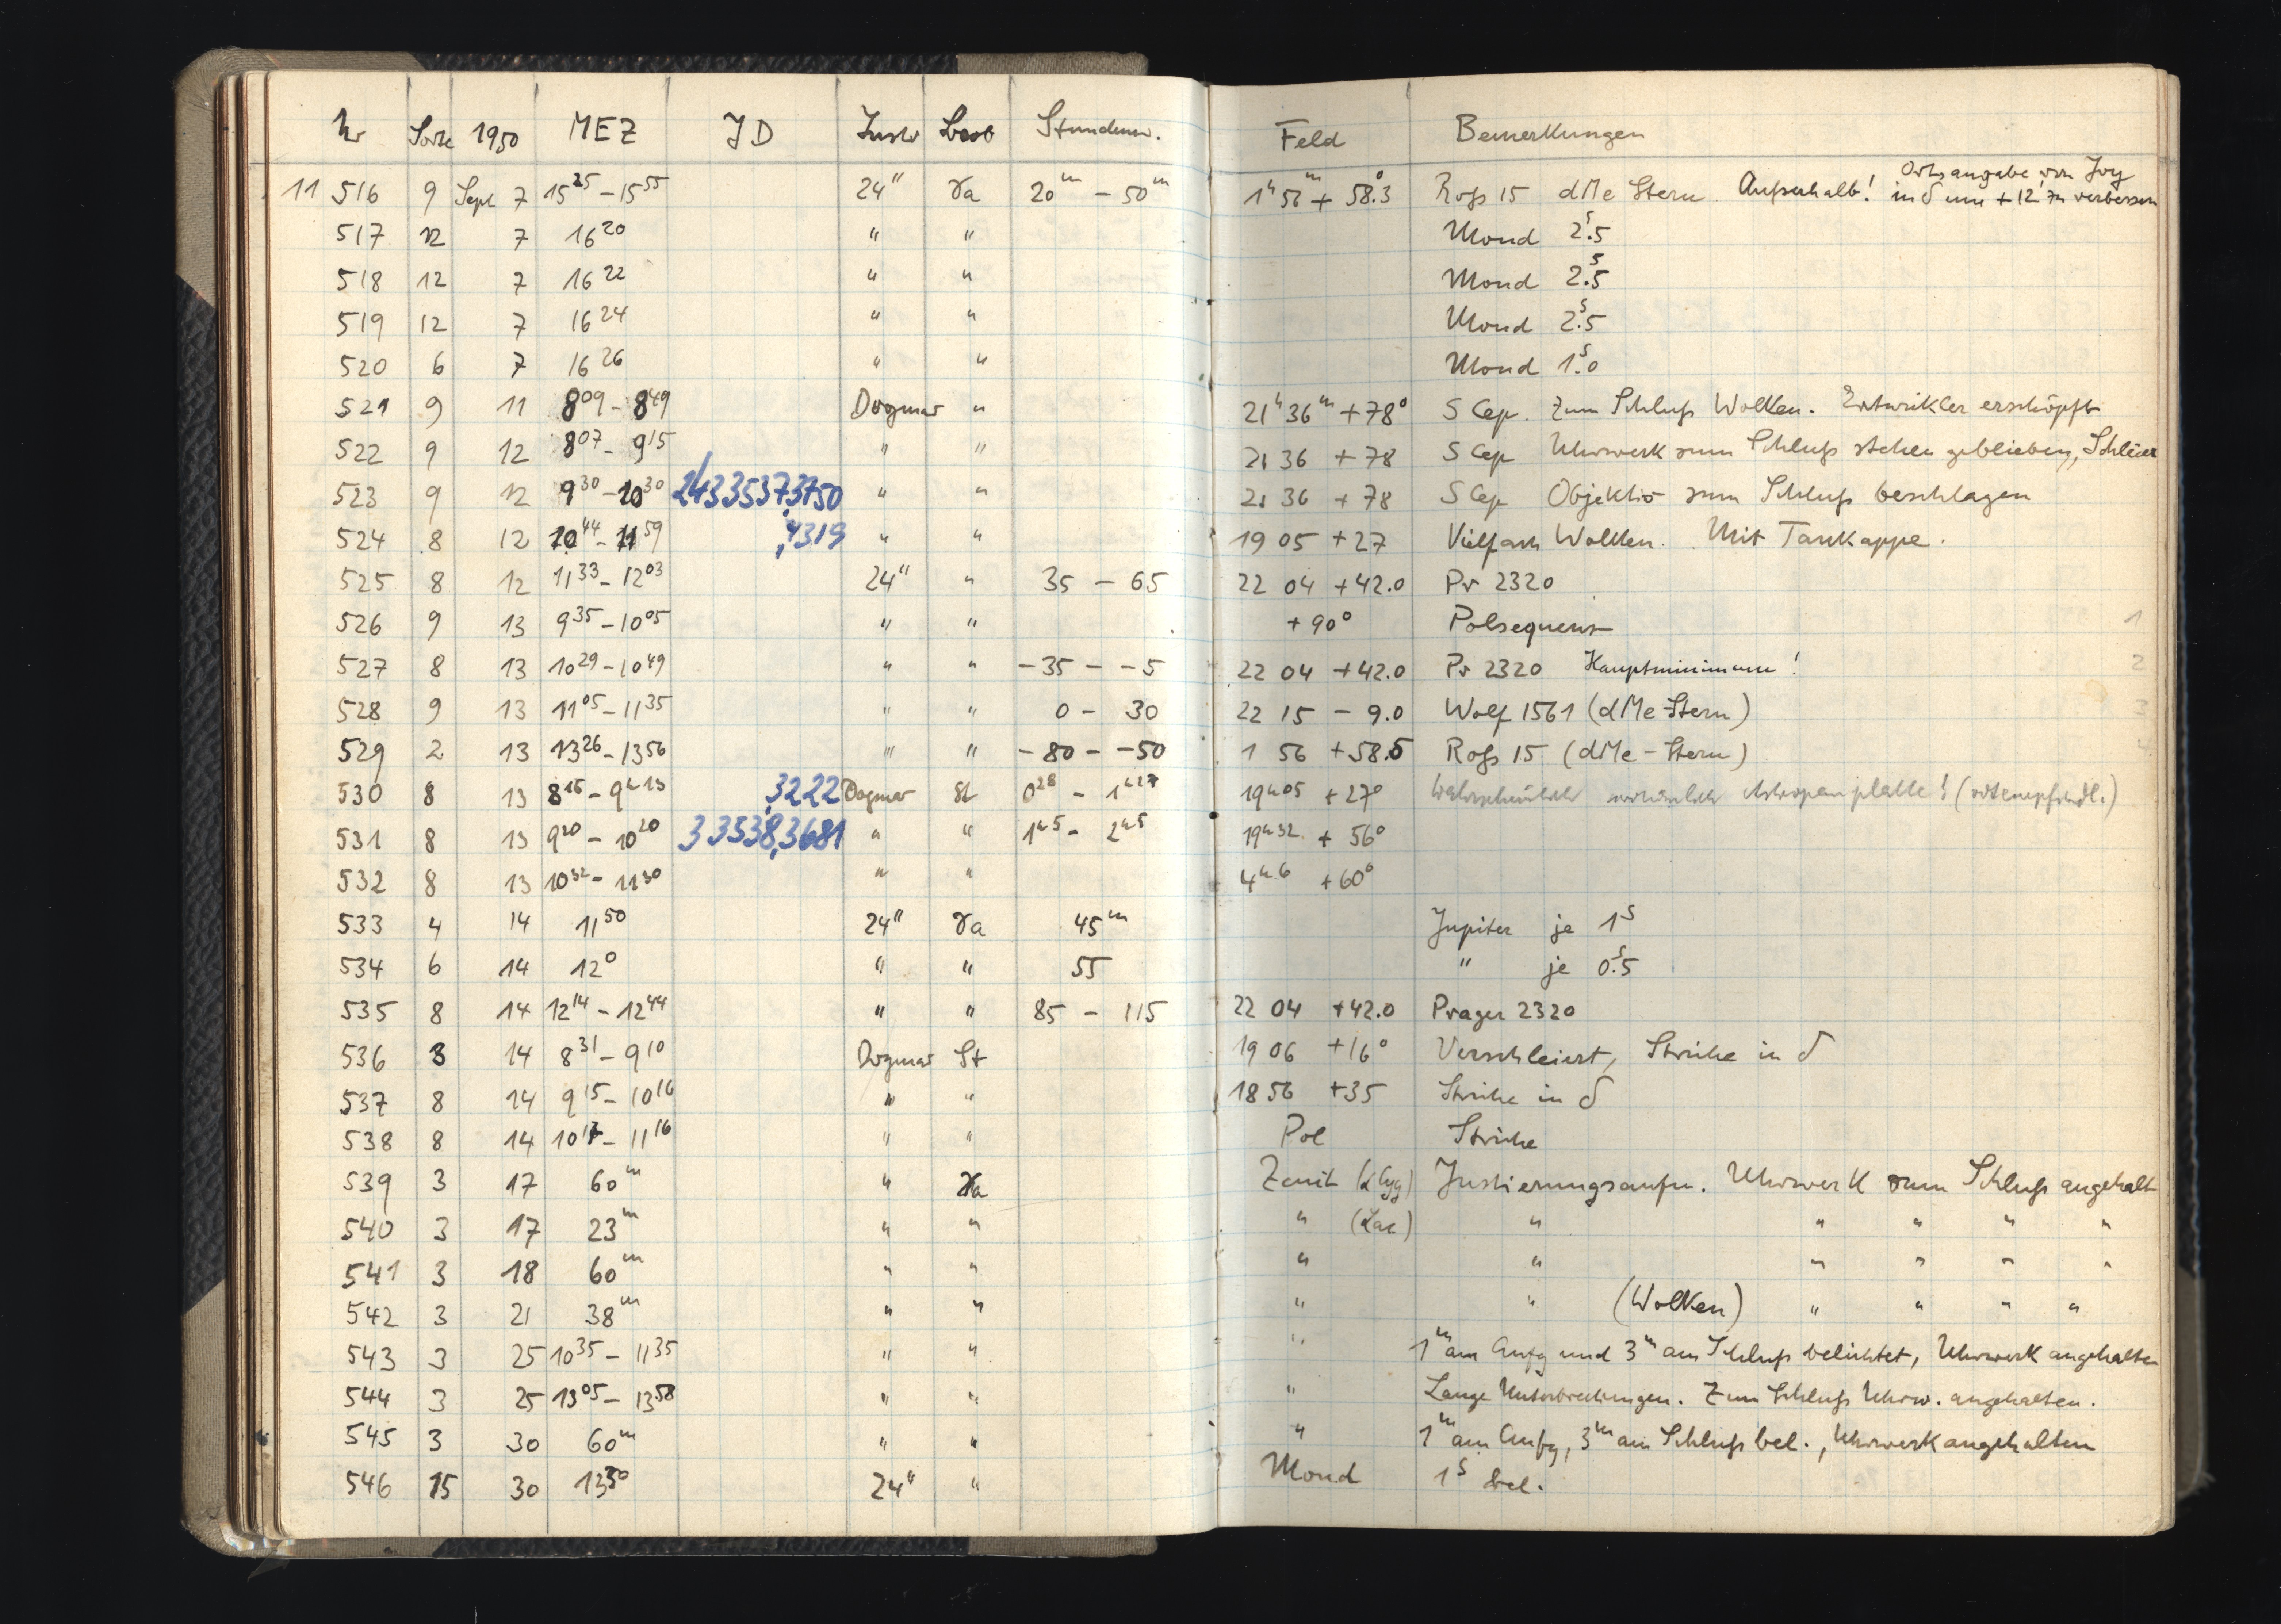 Nr Sorte 1950 MEZ JD Instr Beob Stundenw. Feld Bemerkungen
11 516 9 Sept 7 15 25 - 15 55 24" Ra 20m - 50m 1h 56m + 58°.3 Roß 15 dMe Stern. Außerhalb! Ortsangabe von Joy in δ um + 12' zu verbessern
517 12 7 16 20 " " Mond 2s.5
518 12 7 16 22 " " Mond 2s.5
519 12 7 16 24 " " Mond 2s.5
520 6 7 16 26 " " Mond 1s.0
521 9 11 8 09 - 8 49 Dogmar " 21h 36m + 78° S Cep. Zum Schluß Wolken. Entwickler erschöpft
522 9 12 8 07 - 9 15 " " 21 36 + 78 S Cep Uhrwerk zum Schluß stehen geblieben, Schleier
523 9 12 9 30 - 10 30 2433537,3750 " " 21 36 + 78 S Cep Objektiv zum Schluß beschlagen
524 8 12 10 44 - 11 59 ,4319 " " 19 05 + 27 Vielfach Wolken. Mit Taukappe.
525 8 12 11 33 - 12 03 24" " 35 - 65 22 04 + 42.0 Pr 2320
526 9 13 9 35 - 10 05 " " + 90° Polsequenz 1
527 8 13 10 29 - 10 49 " " - 35 - - 5 22 04 + 42.0 Pr 2320 Hauptminimum! 2
528 9 13 11 05 - 11 35 " " 0 - 30 22 15 - 9.0 Wolf 1561 (dMe-Stern) 3
529 2 13 13 26 - 13 56 " " - 80 - - 50 1 56 + 58.5 Roß 15 (dMe-Stern) 4
530 8 13 8 15 - 9h 13 ,3222 Dogmar St 0 28 - 1h 27 19h 05 + 27° Wahrscheinlich Astropanplatte! (rotempfindl.)
531 8 13 9 20 - 10 20 33538,3681 " " 1h 5 - 2h 5 19h 32 + 56°
532 8 13 10 32 - 11 30 " " 4h 6 + 60°
533 4 14 11 50 24" Ra 45m Jupiter je 1s
534 6 14 12 0 " " 55 " je 0s.5
535 8 14 12 14 - 12 44 " " 85 - 115 22 04 + 42.0 Prager 2320
536 8 14 8 31 - 9 10 Dogmar St 19 06 + 16° Verschleiert, Striche in δ
537 8 14 9 15 - 10 16 " " 18 56 + 35 Striche in δ
538 8 14 10 17 - 11 16 " " Pol Striche
539 3 17 60m " Ra Zenit (α Cyg) Justierungsaufn. Uhrwerk zum Schluß angehalt
540 3 17 23m " " " (Lac) " " " " "
541 3 18 60m " " " " " " " "
542 3 21 38m " " " " (Wolken) " " " "
543 3 25 10 35 - 11 35 " " " 1m am Anfg und 3m am Schluß belichtet, Uhrwerk angehalten
544 3 25 13 05 - 13 58 " " " Lange Unterbrechungen. Zum Schluß Uhrw. angehalten.
545 3 30 60m " " " 1m am Anfg, 3m am Schluß bel., Uhrwerk angehalten
546 15 30 13 50 24" " Mond 1s bel.